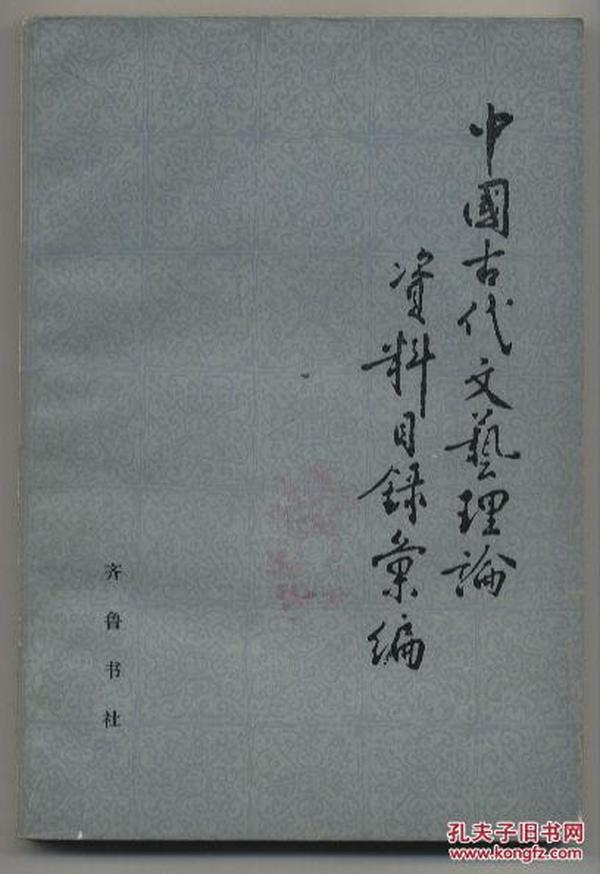 中國古代文藝理論
資料目録彙編
齐鲁书社
孔夫子旧书网
www.kongfz.com